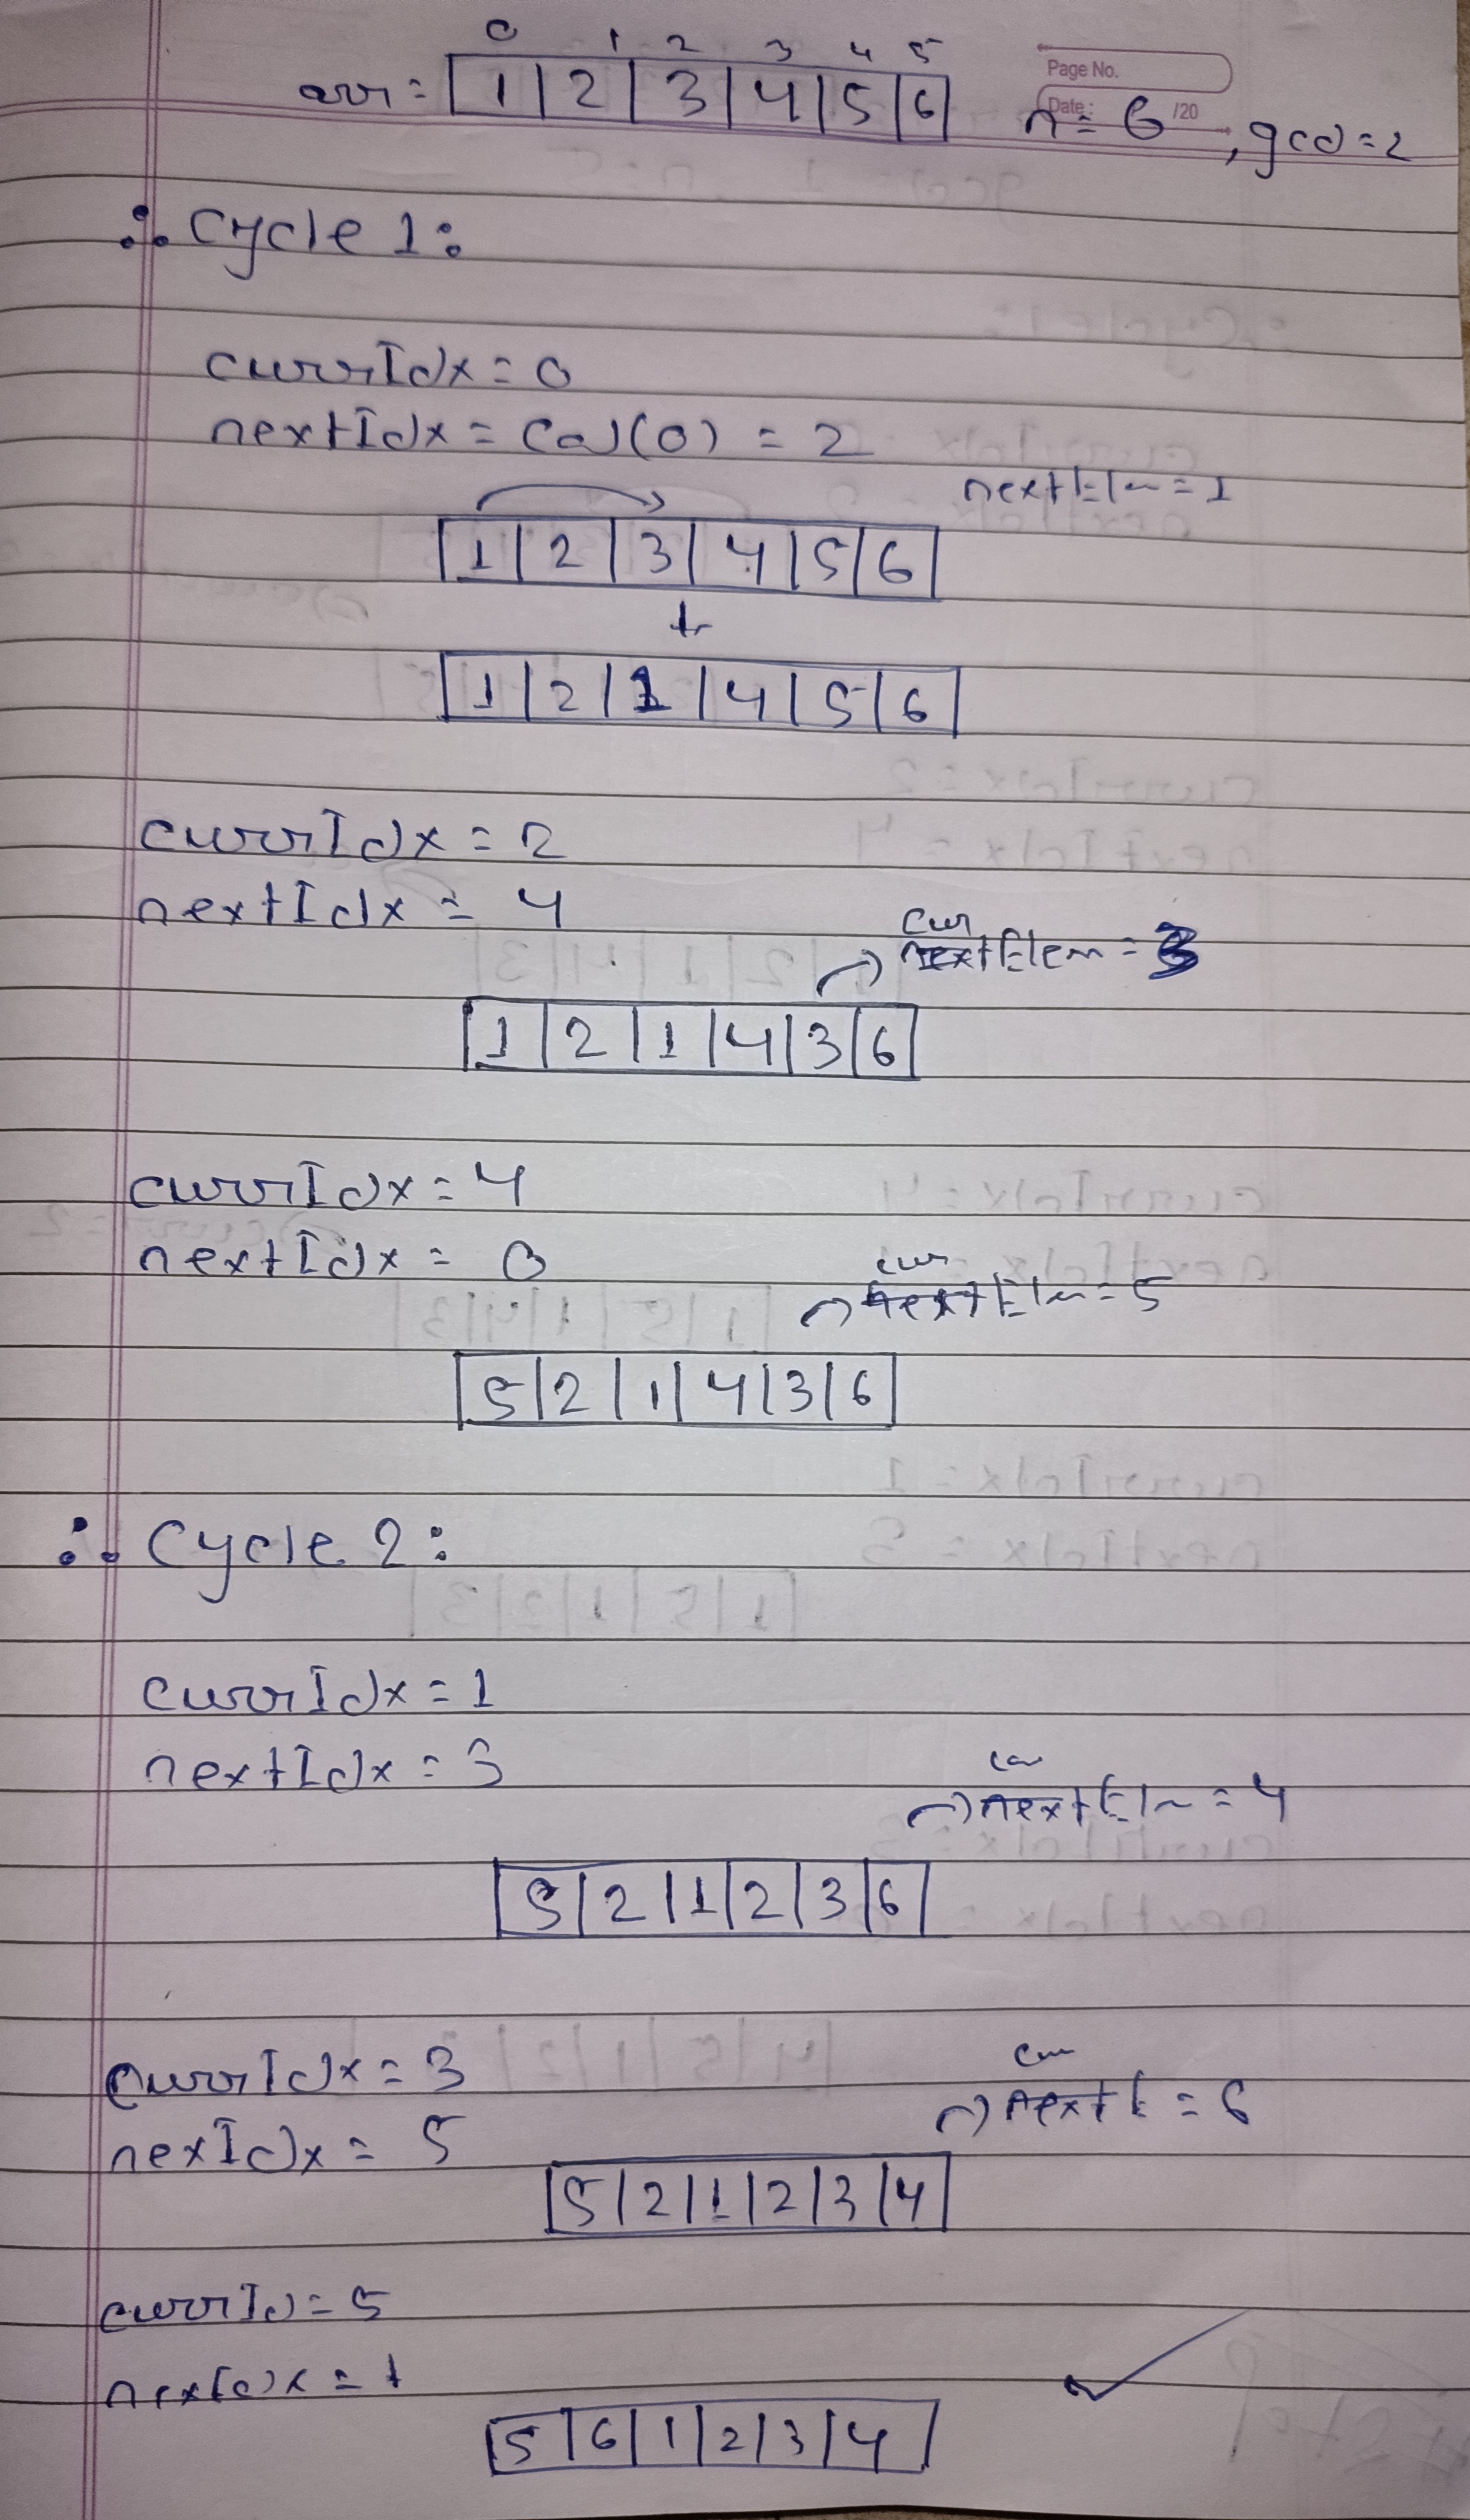 0 1 2 3 4 5
arr = |1|2|3|4|5|6|
Page No.
Date: /20
n = 6, gcd = 2
∴ Cycle 1:
currIdx = 0
nextIdx = Cal(0) = 2
nextElm = 1
|1|2|3|4|5|6|
|1|2|1|4|5|6|
currIdx = 2
nextIdx = 4
cur
nextElem = 3
|1|2|1|4|3|6|
currIdx = 4
nextIdx = 0
cur
nextElm = 5
|5|2|1|4|3|6|
∴ Cycle 2:
currIdx = 1
nextIdx = 3
cur
nextElm = 4
|5|2|1|2|3|6|
currIdx = 3
nexIdx = 5
cur
nextE = 6
|5|2|1|2|3|4|
currId = 5
nextIdx = 1
|5|6|1|2|3|4|